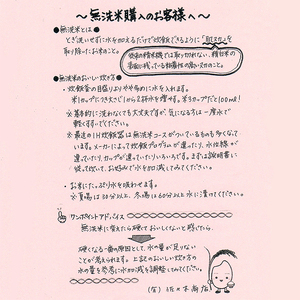 ～無洗米購入のお客様へ～
●無洗米とは●
とぎ洗いせずに水を加えるだけで炊飯できるように「肌ヌカ」を
取り除いたお米のこと。
従来の精米機では取り切れない、精白米の
表面に残っている粘着性の高いヌカのこと。
●無洗米のおいしい炊き方●
・炊飯釜の目盛りよりやや多めに水を入れます。
米1カップにつき大さじ1から2杯水を増やす。米3カップだと100ml!
※基本的に洗わなくても大丈夫ですが、気になる方は一度水で
軽くすすいでください。
※最近のIH炊飯器は無洗米コースがついているものも多くなって
います。メーカーによって炊飯プログラムが違ったり、水位線が
違っていたり、カップが違っていたりいろいろです。まずは説明書に
従って炊いて、お好みで水を加減してみてください。
・お米にたっぷり水を吸わせます。
※夏場は30分以上、冬場は60分以上水に漬けてください。
ワンポイントアドバイス
無洗米に替えたら硬くておいしくないと感じたら、
硬くなる一番の原因として、水の量が足りない
ことが考えられます。上記のおいしい炊き方の
水の量を参考に水加減を調整してみてください。
(有)佐々木商店